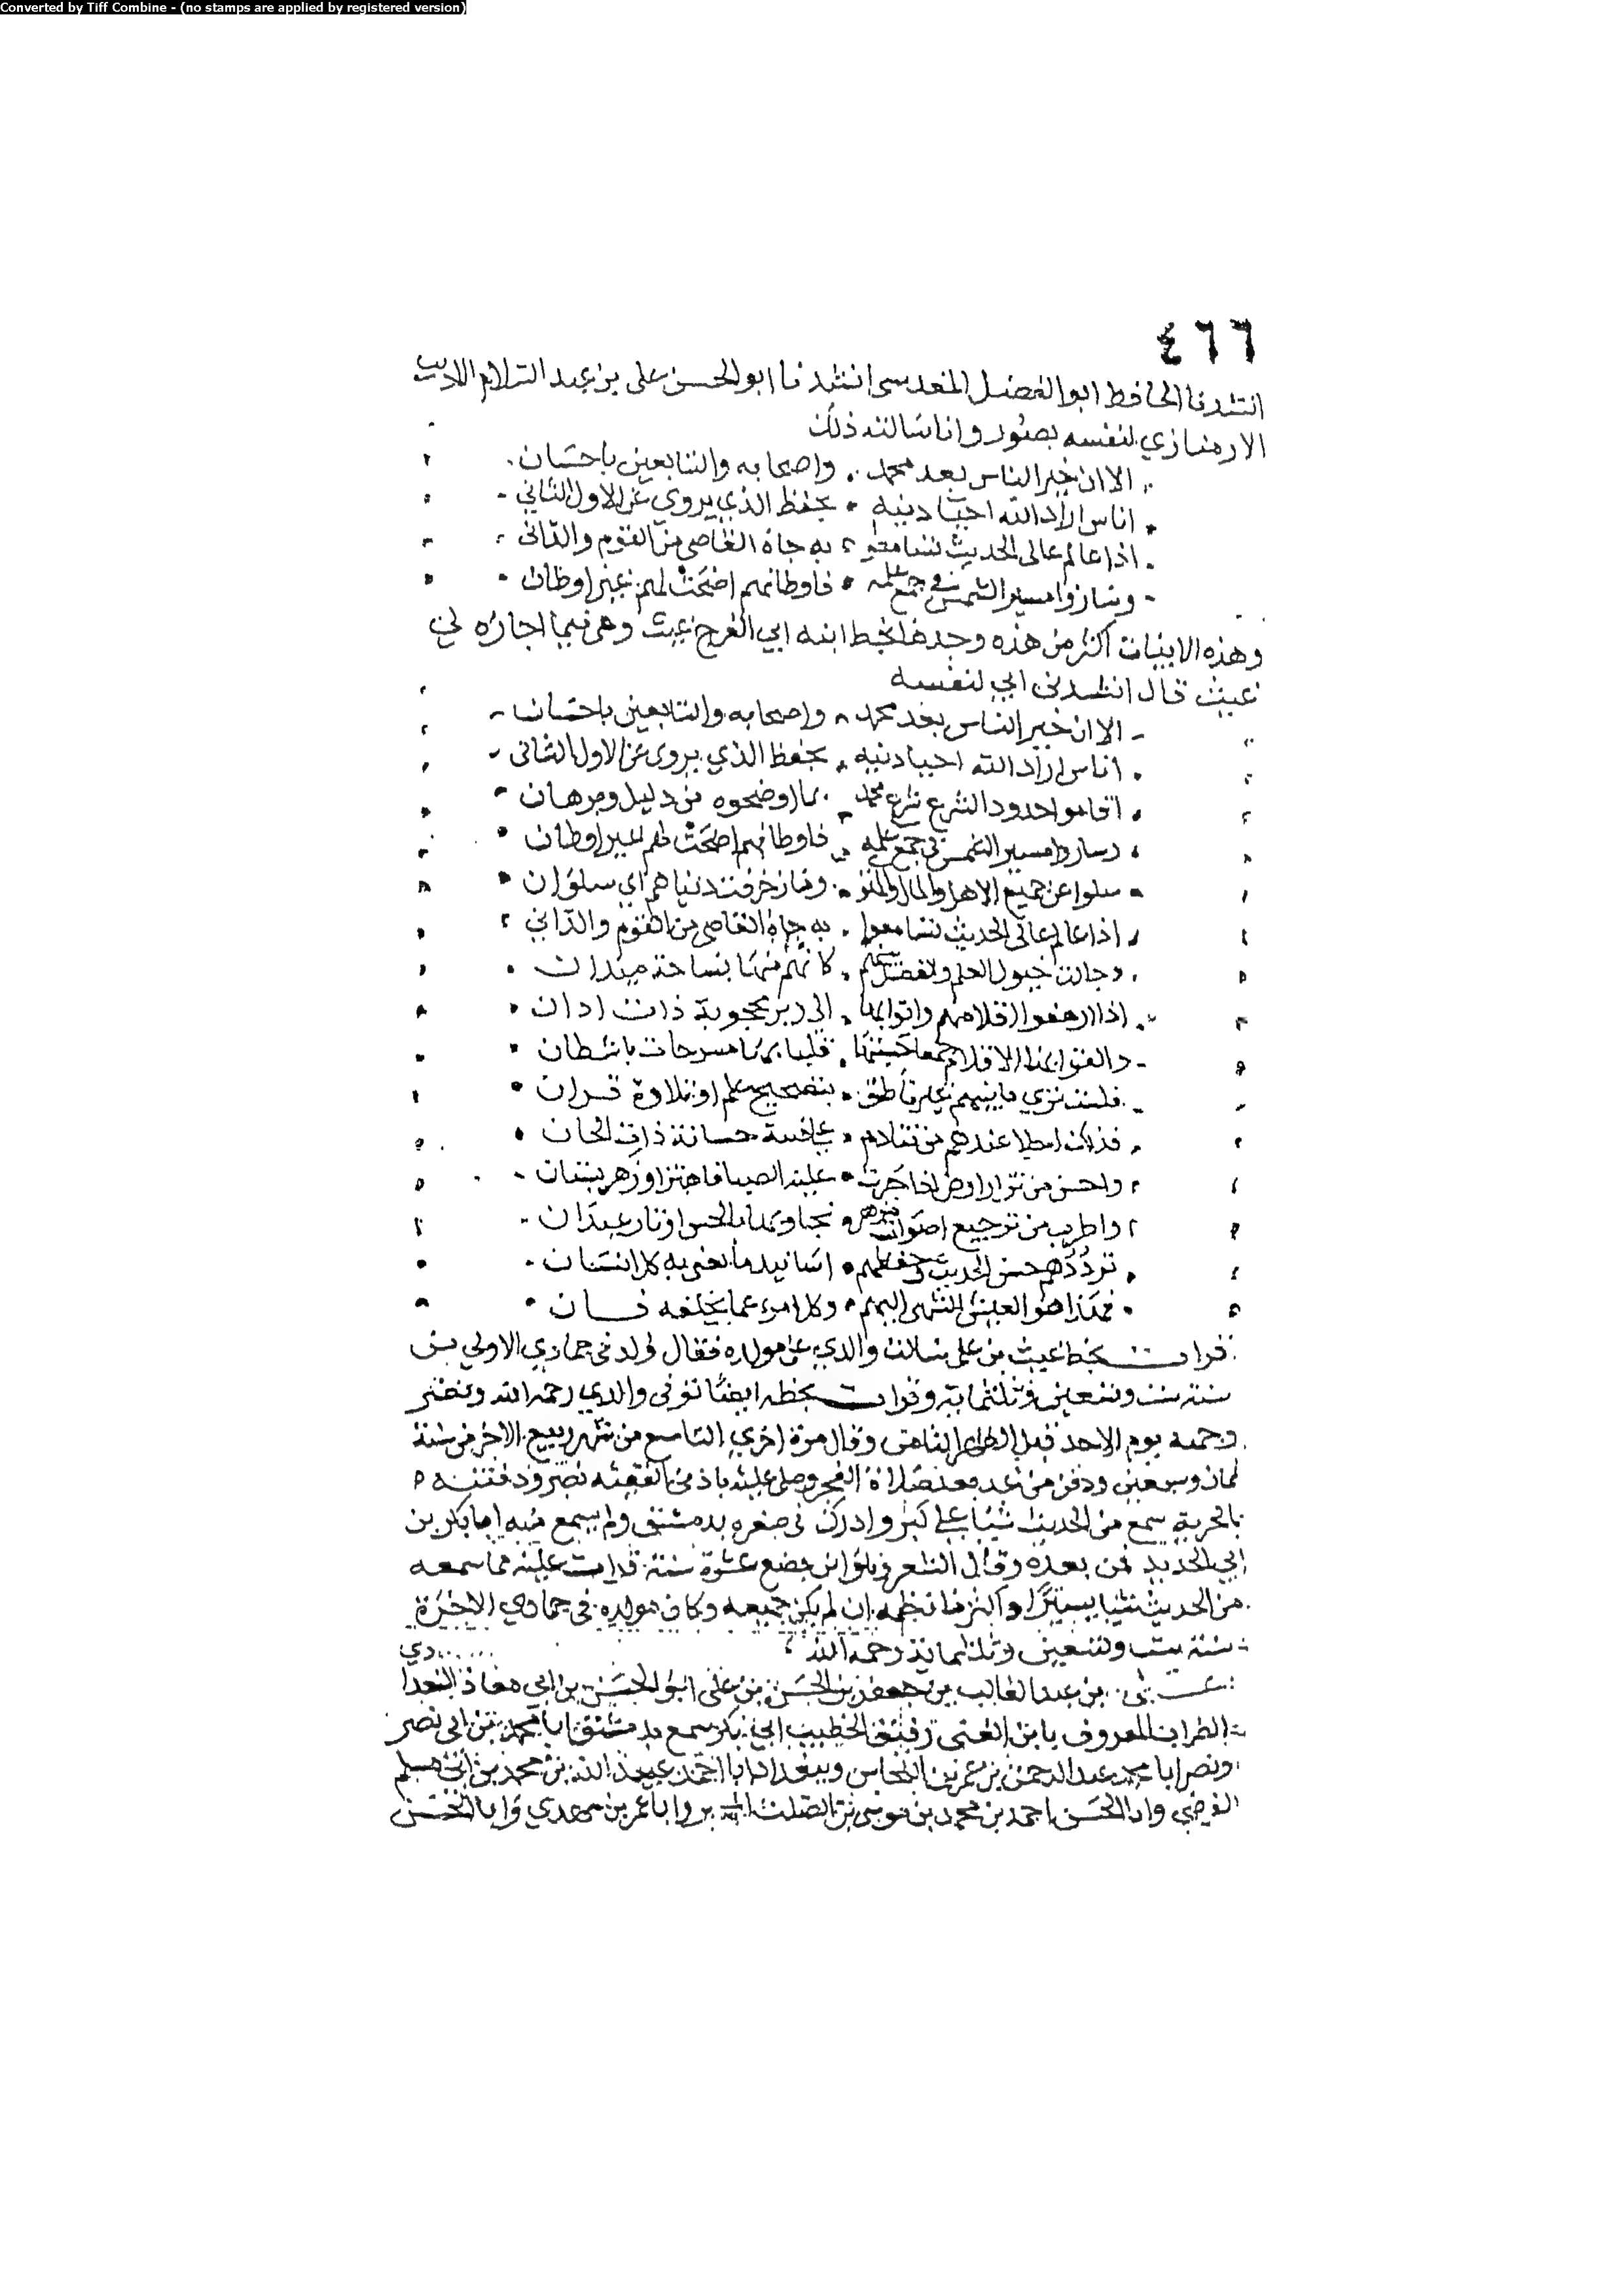 Converted by Tiff Combine - (no stamps are applied by registered version)
٤٦٦
انشدنا الحافظ ابو الفضل المقدسي انشدنا ابو الحسن علي بن عبد السلام الاديب
الارمنازي لنفسه بصور وانا سالته ذلك
الا ان خير الناس بعد محمد واصحابه والتابعين باحسان
اناس اراد الله احيا دينه بحفظ الذي يروي عن الاول الثاني
اذا عالم عالي الحديث تسامعوا به جاه القاصي من القوم والداني
وساروا مسير الشمس في جمع علمه فاوطانهم اضحت لهم غير اوطان
وهذه الابيات اكثر من هذه وجدها بخط ابنه ابي الفرج غيث وهي فيما اجازه لي
غيث قال انشدني ابي لنفسه
الا ان خير الناس بعد محمد واصحابه والتابعين باحسان
اناس اراد الله احيا دينه بحفظ الذي يروي عن الاول الثاني
اقاموا حدود الشرع شرع محمد بما اوضحوه من دليل وبرهان
وساروا مسير الشمس في جمع علمه فاوطانهم اضحت لهم غير اوطان
سلوا عن جميع الاهل والمال والمنى وما زخرفت دنياهم اي سلوان
اذا عالم عالي الحديث تسامعوا به جاه القاصي من القوم والداني
وجالت خيول العلم والفضل بينهم كانهم منها بساحة ميدان
اذا ارهفوا اقلامهم واتوا بها الى زبر محجوبة ذات اذان
والقوا بها الاقلام جمعا حسبتها قليبا بها مسرحات باشطان
فلست ترى ما بينهم غير ناطق بتصحيح علم او تلاوة قران
فذلك احلى عندهم من تنادم على قينة حسانة ذات الحان
واحسن من نوار روض اذا جرت عليه الصبا فاهتز او زهر بستان
واطرب من ترجيع اصوات مزهر تجاوبها بالحس اوتار عيدان
ترددهم حسن الحديث وحفظهم اسانيد ما يعنى به كل انسان
فهذا هو العيش المشهى اليهم وكل امرء عما يخلفه فان
قرات بخط غيث بن علي سالت والدي عن مولده فقال ولد في جمادي الاولي من
سنة ست وتسعين وثلثماية وقرات بخطه ايضا توفي والدي رحمه الله ونضر
وجهه يوم الاحد قبل الظهر الثامن وقال مرة اخري التاسع من شهر ربيع الاخر من سنة
ثمان وسبعين ودفن من غد بعد صلاة الفجر وصلى عليه باذني الفقيه نصر ودفنته
بالحربة سمع من الحديث شيئا على كبر وادرك في صغره بدمشق ولم يسمع منه ابا بكر بن
ابي الحديد فمن بعده وقال الشعر وهو ابن بضع عشرة سنة قرات عليه مما سمعه
من الحديث شيئا يسيرا واكثر ما نظمه ان لم يكن جميعه وكان مولده في جمادي الاخرة
سنة ست وتسعين وثلثماية رحمه الله
علي بن عبد الغالب بن جعفر بن الحسن بن علي ابو الحسن بن ابي معاذ البغدادي
الضراب المعروف بابن القني رفيق الخطيب ابي بكر سمع بدمشق ابا محمد بن ابي نصر
ونصر ابا محمد عبد الرحمن بن عمر بن النحاس وببغداد ابا احمد عبيد الله بن محمد بن ابي مسلم
الفرضي وابا الحسن احمد بن محمد بن موسى بن الصلت وابا عمر بن مهدي وابا الحسن